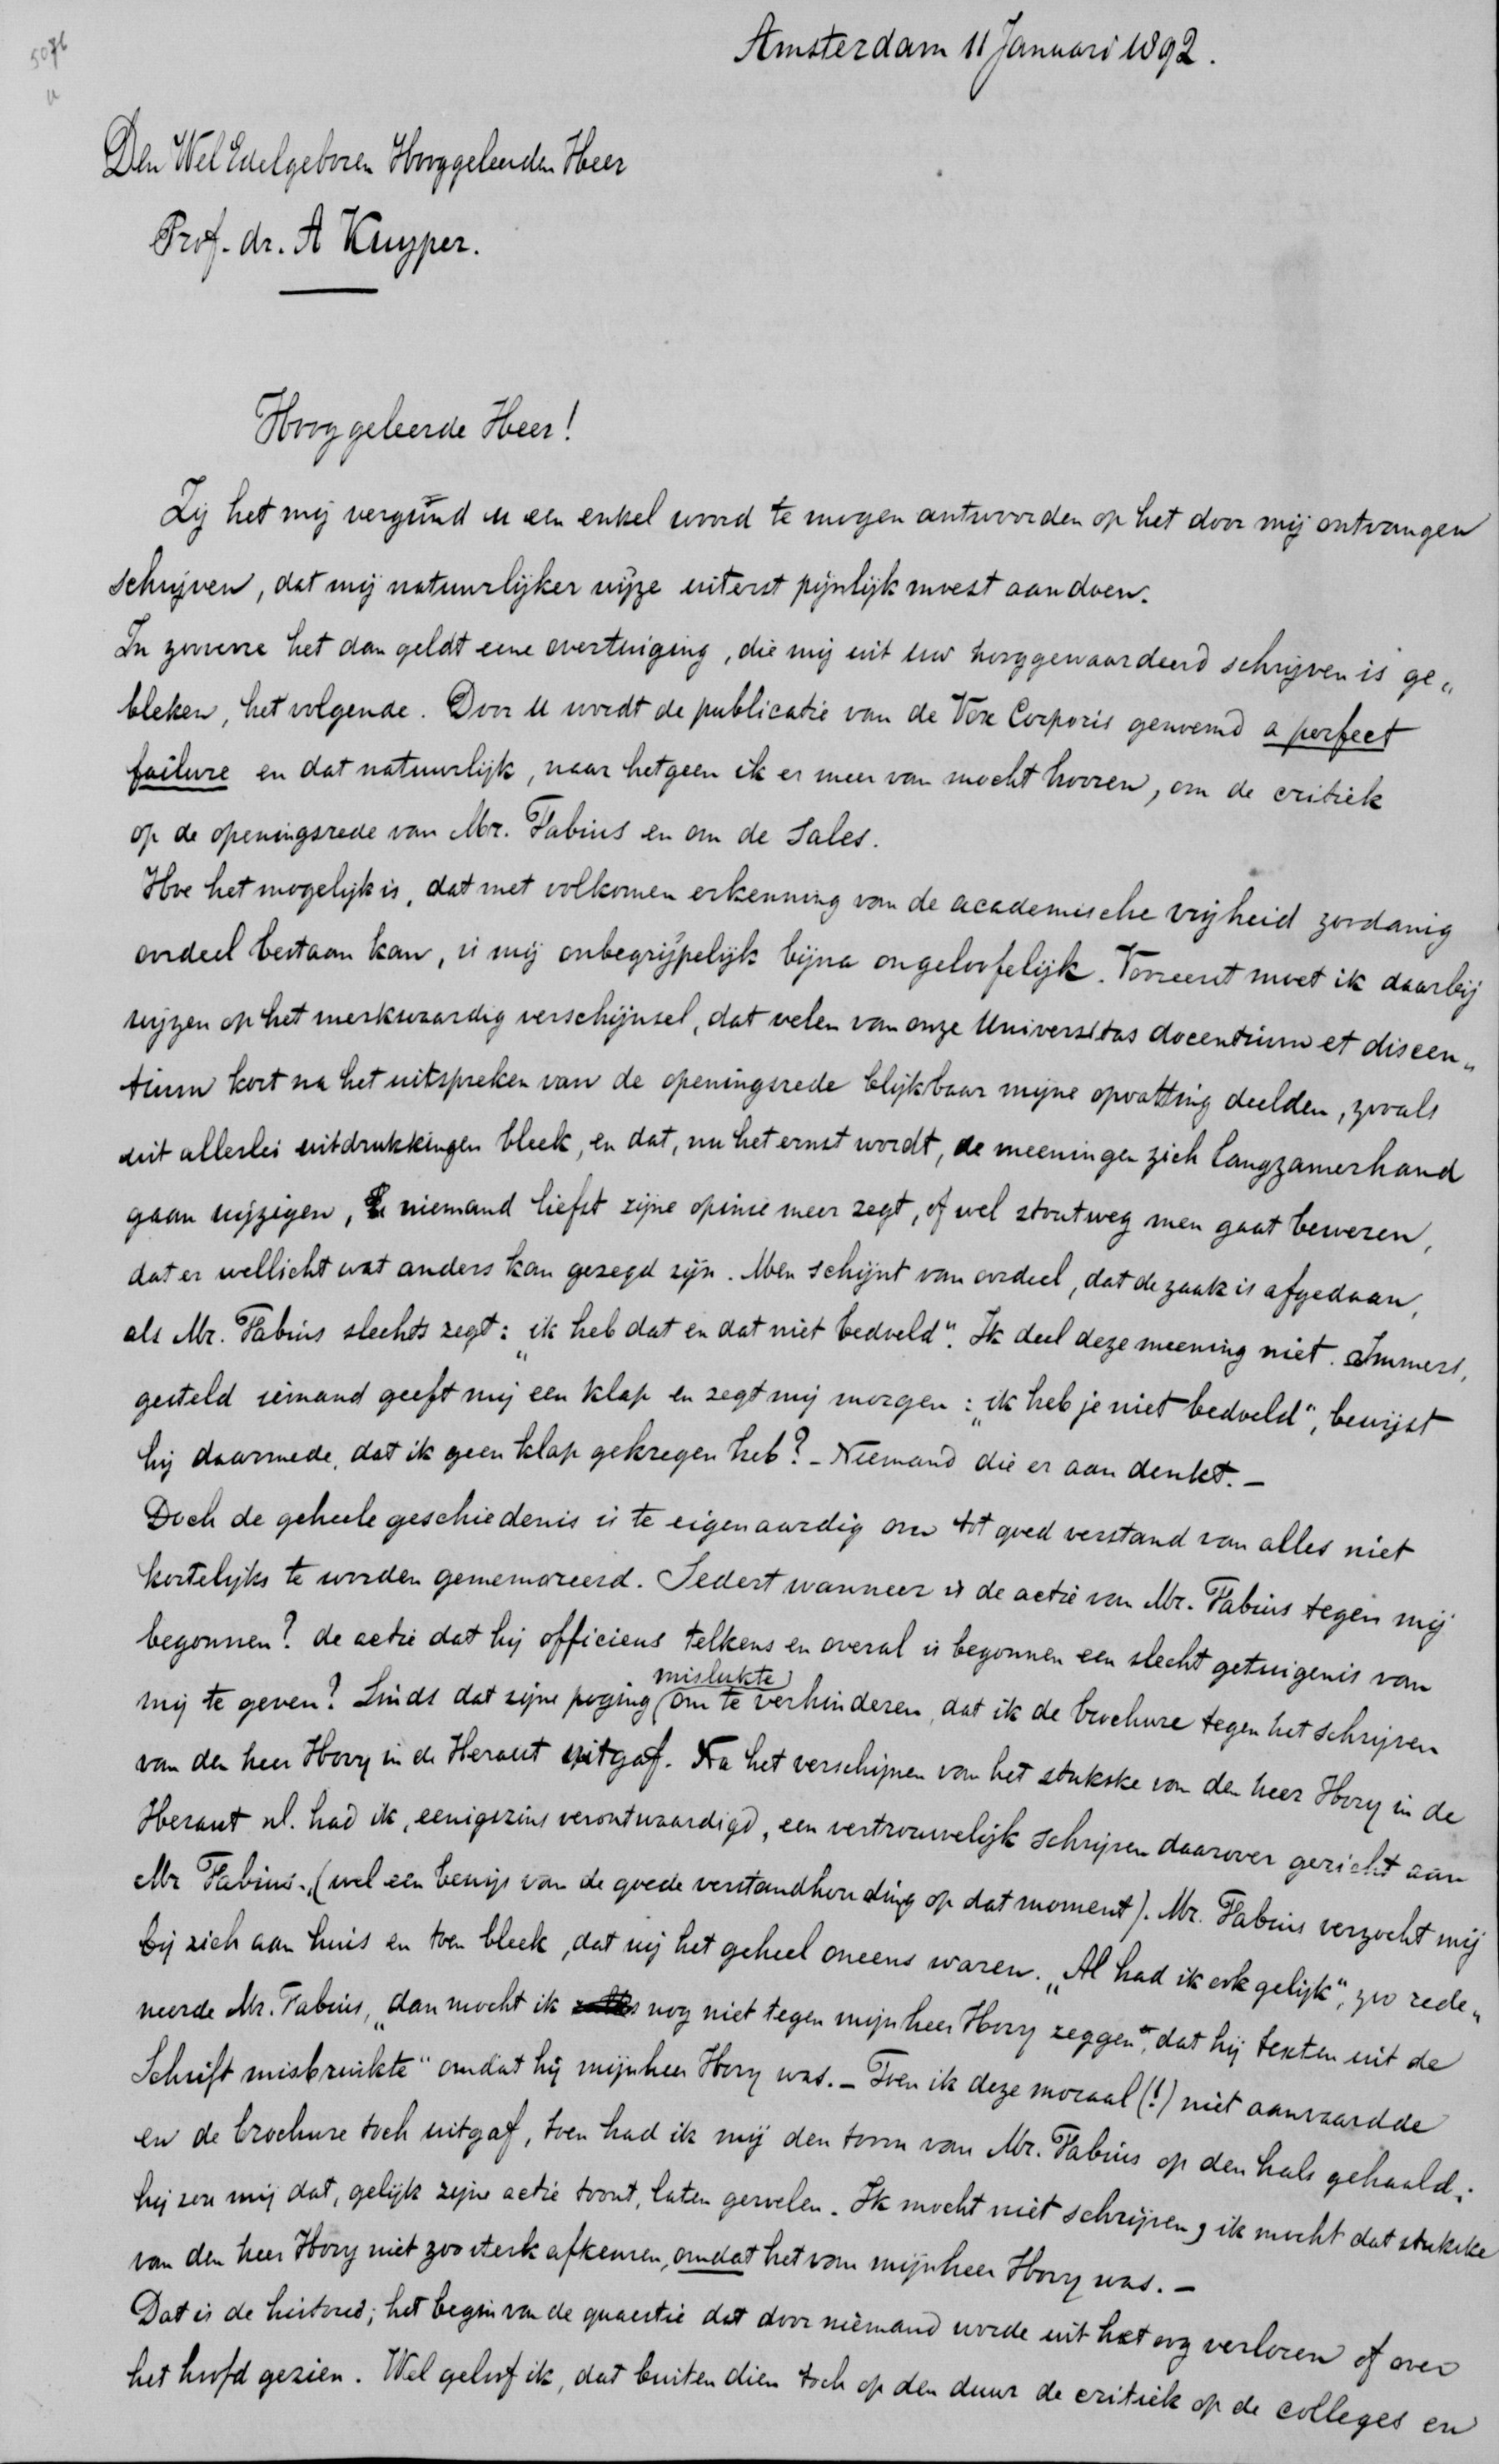 5076
Amsterdam 11 Januari 1892.
Den Wel Edelgeboren Hooggeleerden Heer
Prof. dr. A Kuyper.
Hooggeleerde Heer!
Zij het mij vergund u een enkel woord te mogen antwoorden op het door mij ontvangen
schrijven, dat mij natuurlijker wijze uiterst pijnlijk moest aandoen.
In zooverre het dan geldt eene overtuiging, die mij uit uw hooggewaardeerd schrijven is ge„
bleken, het volgende. Door U wordt de publicatie van de Vox Corporis genoemd a perfect
failure en dat natuurlijk, naar hetgeen ik er meer van mocht hooren, om de critiek
op de openingsrede van Mr. Fabius en om de Sales.
Hoe het mogelijk is, dat met volkomen erkenning van de academische vrijheid zoodanig
oordeel bestaan kan, is mij onbegrijpelijk bijna ongeloofelijk. Vooreerst moet ik daarbij
wijzen op het merkwaardig verschijnsel, dat velen van onze Universitas docentium et discen„
tium kort na het uitspreken van de openingsrede blijkbaar mijne opvatting deelden, zooals
uit allerlei uitdrukkingen bleek, en dat, nu het ernst wordt, de meeningen zich langzamerhand
gaan wijzigen, niemand liefst zijne opinie meer zegt, of wel stoutweg men gaat beweren,
dat er wellicht wat anders kan gezegd zijn. Men schijnt van oordeel, dat de zaak is afgedaan,
als Mr. Fabius slechts zegt: „ik heb dat en dat niet bedoeld". Ik deel deze meening niet. Immers,
gesteld iemand geeft mij een klap en zegt mij morgen: „ik heb je niet bedoeld", bewijst
hij daarmede, dat ik geen klap gekregen heb? - Niemand die er aan denkt. -
Doch de geheele geschiedenis is te eigenaardig om tot goed verstand van alles niet
kortelijks te worden gememoreerd. Sedert wanneer is de actie van Mr. Fabius tegen mij
begonnen? de actie dat hij officieus telkens en overal is begonnen een slecht getuigenis van
mij te geven? Sinds dat zijne poging mislukte om te verhinderen, dat ik de brochure tegen het schrijven
van den heer Hovy in de Heraut uitgaf. Na het verschijnen van het stukske van den heer Hovy in de
Heraut nl. had ik, eenigszins verontwaardigd, een vertrouwelijk schrijven daarover gericht aan
Mr Fabius. (wel een bewijs van de goede verstandhouding op dat moment). Mr. Fabius verzocht mij
bij zich aan huis en toen bleek, dat wij het geheel oneens waren. „Al had ik ook gelijk", zoo rede„
neerde Mr. Fabius, „dan mocht ik nog niet tegen mijnheer Hovy zeggen", dat hij texten uit de
Schrift misbruikte" omdat hij mijnheer Hovy was. - Toen ik deze moraal (!) niet aanvaardde
en de brochure toch uitgaf, toen had ik mij den toorn van Mr. Fabius op den hals gehaald;
hij zou mij dat, gelijk zijne actie toont, laten gevoelen. Ik mocht niet schrijven, ik mocht dat stukske
van den heer Hovy niet zoo sterk afkeuren, omdat het van mijnheer Hovy was. -
Dat is de historie; het begin van de quaestie dat door niemand worde uit het oog verloren of over
het hoofd gezien. Wel geloof ik, dat buitendien toch op den duur de critiek op de colleges en